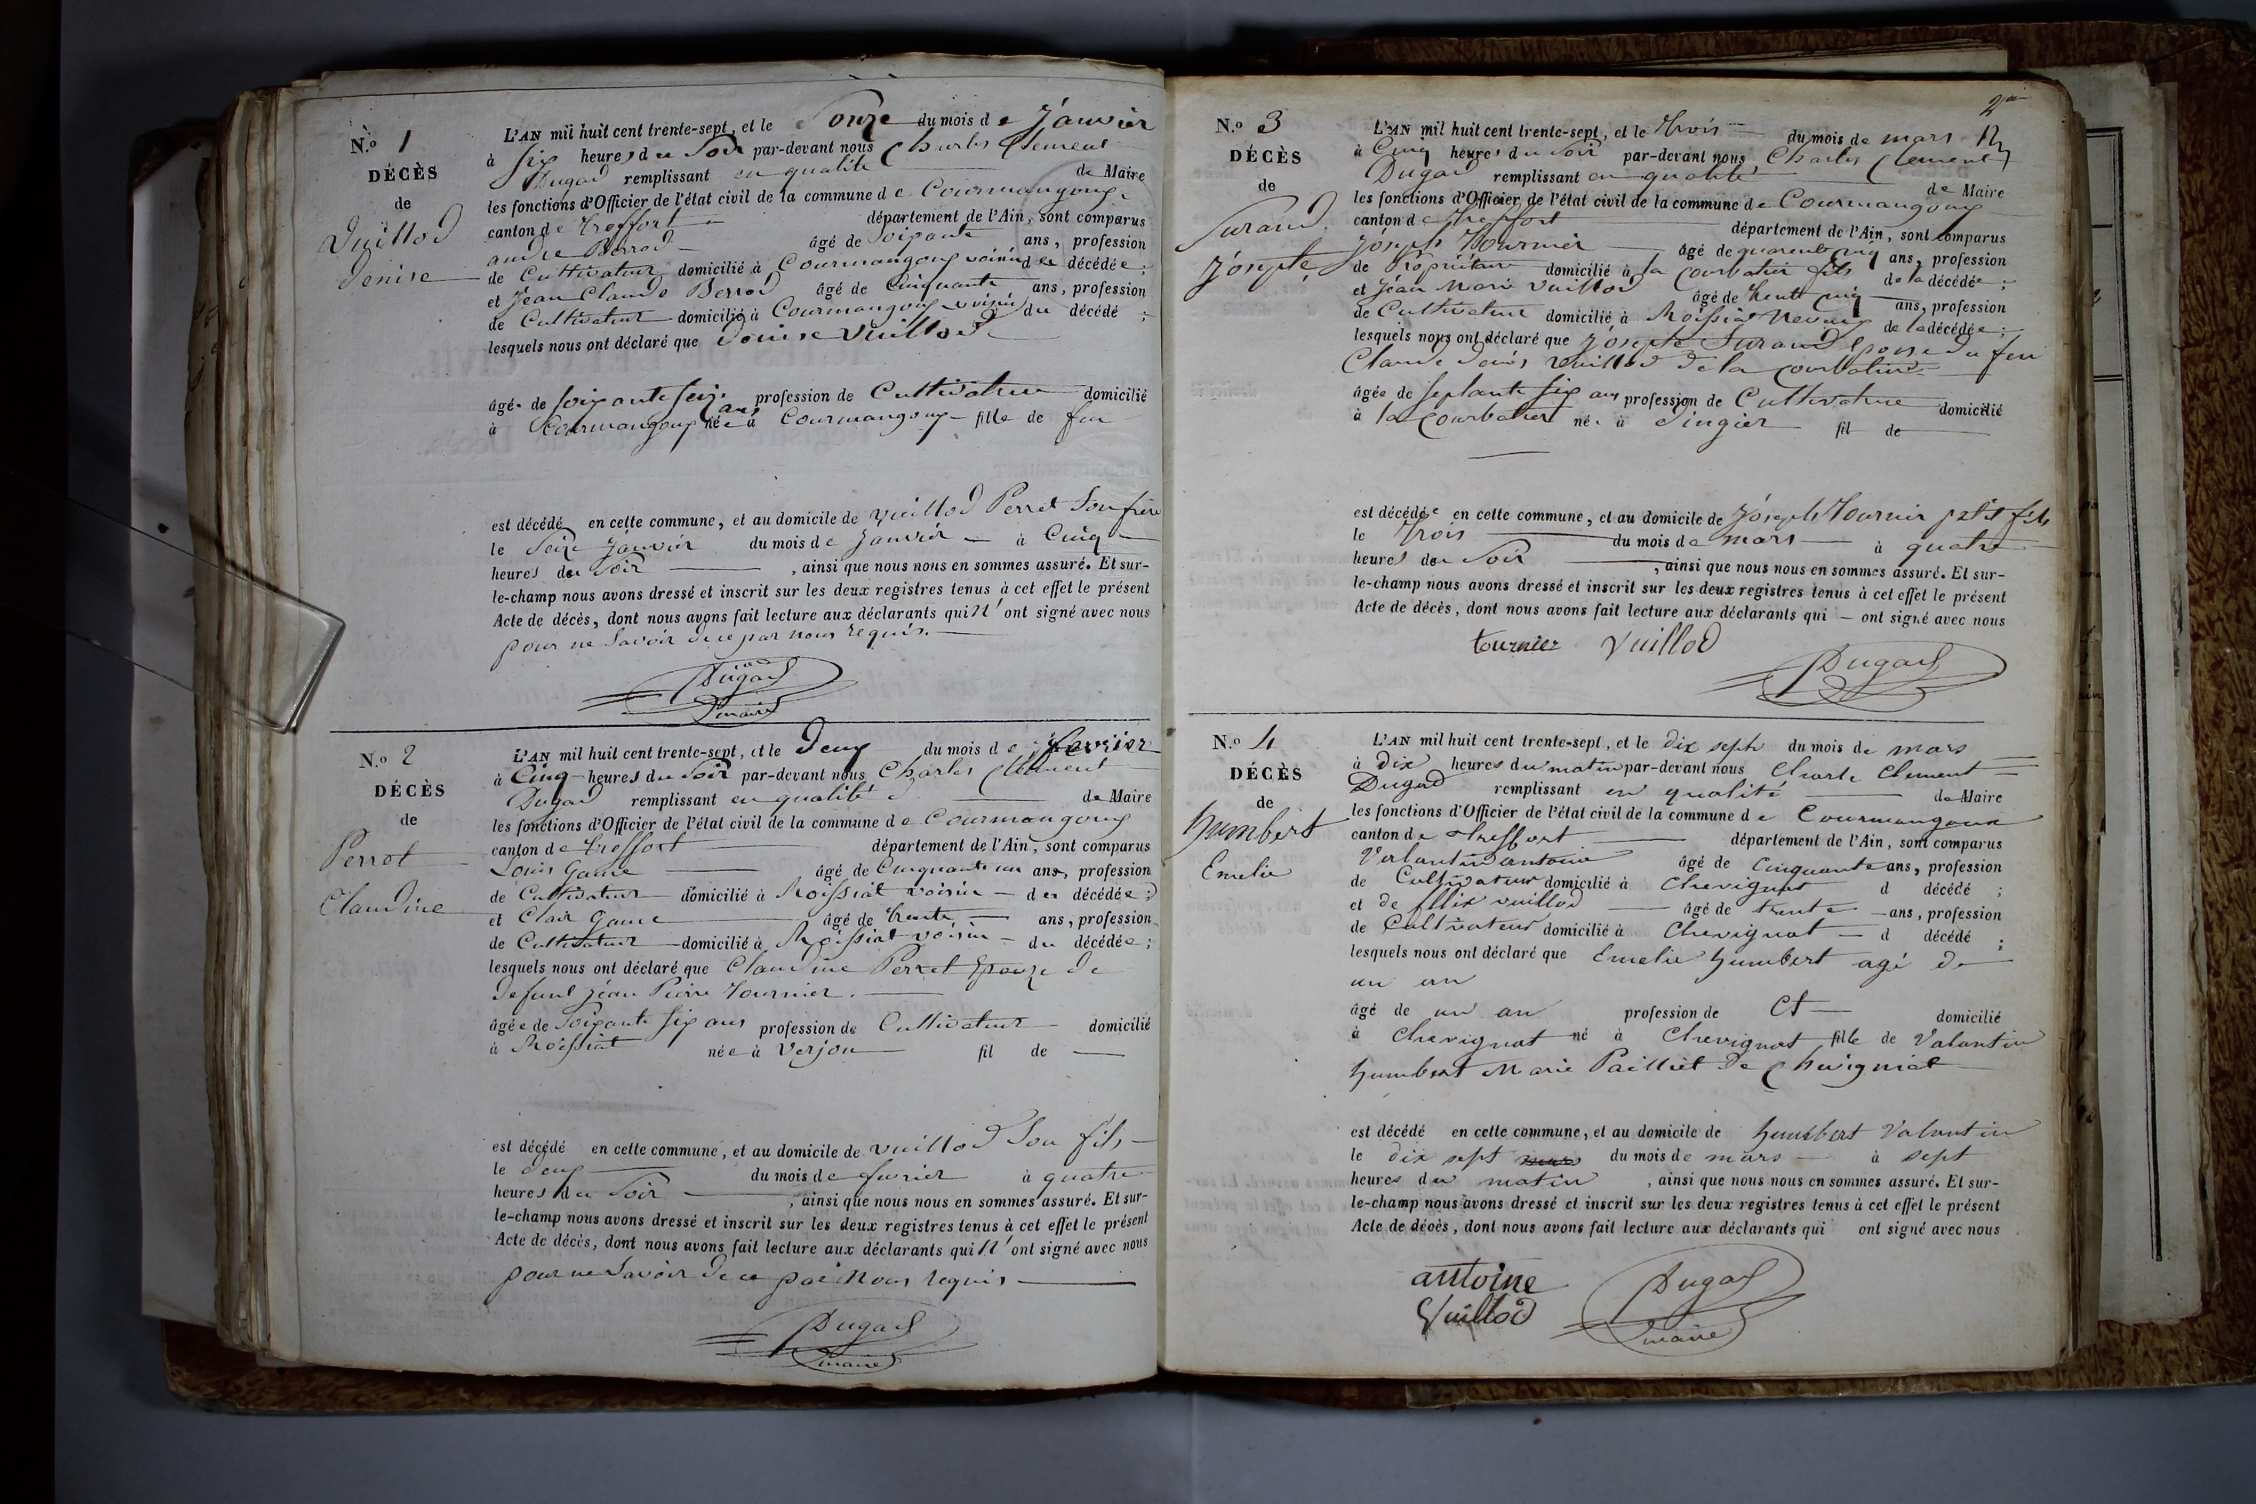 N.o 1
DÉCÈS
de
Vuillod
Denise
L'AN mil huit cent trente-sept, et le du mois de Janvier
à six heures du Soir par-devant nous Charles Clement
Dugad remplissant en qualité de Maire
les fonctions d'Officier de l'état civil de la commune de Courmangoux
canton de treffort département de l'Ain, sont comparus
andré Berrod âgé de Soixante ans, profession
de Cultivateur domicilié à Courmangoux voisin de décédée;
et Jean Claude Berrod âgé de Cinquante ans, profession
de Cultivateur domicilié à Courmangoux voisin du décédé;
lesquels nous ont déclaré que Denise Vuillod
âgée de soixante seize ans profession de Cultivatrice domicilié
à Courmangoux née à Courmangoux fille de feu
est décédé en cette commune, et au domicile de Vuillod Perret Son frère
le Seize Janvier du mois de Janvier à Cinq
heures du Soir, ainsi que nous nous en sommes assuré. Et sur-
le-champ nous avons dressé et inscrit sur les deux registres tenus à cet effet le présent
Acte de décès, dont nous avons fait lecture aux déclarants qui N'ont signé avec nous
pour ne Savoir de ce par nous requis.
Dugad
maire
N.o 2
DÉCÈS
de
Perret
Claudine
L'AN mil huit cent trente-sept, et le Deux du mois de fevrier
à Cinq heures du Soir par-devant nous Charles Clement
Dugad remplissant en qualité de Maire
les fonctions d'Officier de l'état civil de la commune de Courmangoux
canton de treffort département de l'Ain, sont comparus
Louis Game âgé de Cinquante un ans, profession
de Cultivateur domicilié à Roissiat voisin de décédée;
et Clair Game âgé de trente ans, profession
de Cultivateur domicilié à Roissiat voisin du décédée;
lesquels nous ont déclaré que Claudine Perret Epouze de
defunt jean Pierre Tournier.
âgée de Soixante six ans profession de Cultivateur domicilié
à Roissiat née à Verjon fil de
est décédé en cette commune, et au domicile de Vuillod Son fils
le deux du mois de fevrier à quatre
heures du Soir, ainsi que nous nous en sommes assuré. Et sur-
le-champ nous avons dressé et inscrit sur les deux registres tenus à cet effet le présent
Acte de décès, dont nous avons fait lecture aux déclarants qui N'ont signé avec nous
pour ne Savoir de ce par Nous requis
Dugad
maire
2
N.o 3
DÉCÈS
de
Surand
Josepte
L'AN mil huit cent trente-sept, et le trois du mois de mars
à Cinq heures du Soir par-devant nous Charles Clement
Dugad remplissant en qualité de Maire
les fonctions d'Officier de l'état civil de la commune de Courmangoux
canton de treffort département de l'Ain, sont comparus
Joseph Tournier âgé de quarente cinq ans, profession
de Propriétaire domicilié à la Courbatier fils de la décédée;
et Jean Marie Vuillod âgé de trente cinq ans, profession
de Cultivateur domicilié à Roissiat Neveux de la décédée;
lesquels nous ont déclaré que Josepte Surand Epouse du feu
Claude Denis Vuillod de la Courbatier
âgée de septante six ans profession de Cultivatrice domicilié
à la Courbatier né à Singier fil de
est décédée en cette commune, et au domicile de Joseph Tournier petit fils
le trois du mois de mars à quatre
heures du Soir, ainsi que nous nous en sommes assuré. Et sur-
le-champ nous avons dressé et inscrit sur les deux registres tenus à cet effet le présent
Acte de décès, dont nous avons fait lecture aux déclarants qui ont signé avec nous
tournier Vuillod
Dugad
N.o 4
DÉCÈS
de
humbert
Emelie
L'AN mil huit cent trente-sept, et le dix sept du mois de mars
à dix heures du matin par-devant nous Charle Clement
Dugad remplissant en qualité de Maire
les fonctions d'Officier de l'état civil de la commune de Courmangoux
canton de treffort département de l'Ain, sont comparus
Valantin antoine âgé de cinquante ans, profession
de Cultivateur domicilié à Chevignat d décédé;
et de fllix vuillod âgé de trente ans, profession
de Cultivateur domicilié à Chevignat d décédé;
lesquels nous ont déclaré que Emelie humbert agé de
un an
âgé de un an profession de domicilié
à Chevignat né à Chevignat fille de Valantin
humbert Marie Paillet de Chevigniat
est décédé en cette commune, et au domicile de humbert Valantin
le dix sept du mois de mars à sept
heures du matin, ainsi que nous nous en sommes assuré. Et sur-
le-champ nous avons dressé et inscrit sur les deux registres tenus à cet effet le présent
Acte de décès, dont nous avons fait lecture aux déclarants qui ont signé avec nous
antoine
Vuillod
Dugad
maire